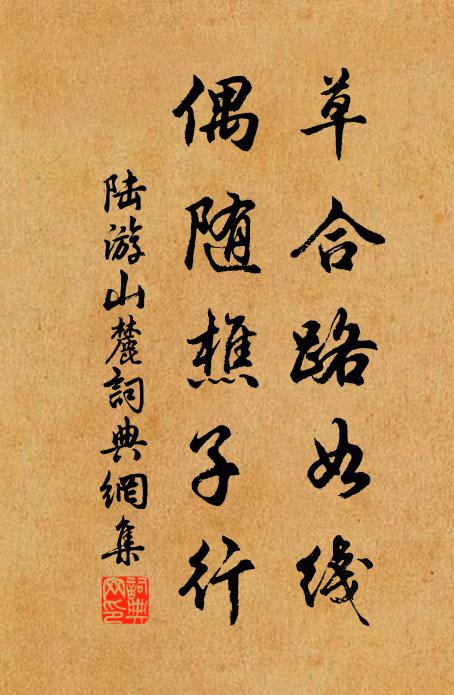 草合路如线
偶随樵子行
陆游山麓詞典網集
詞典网印